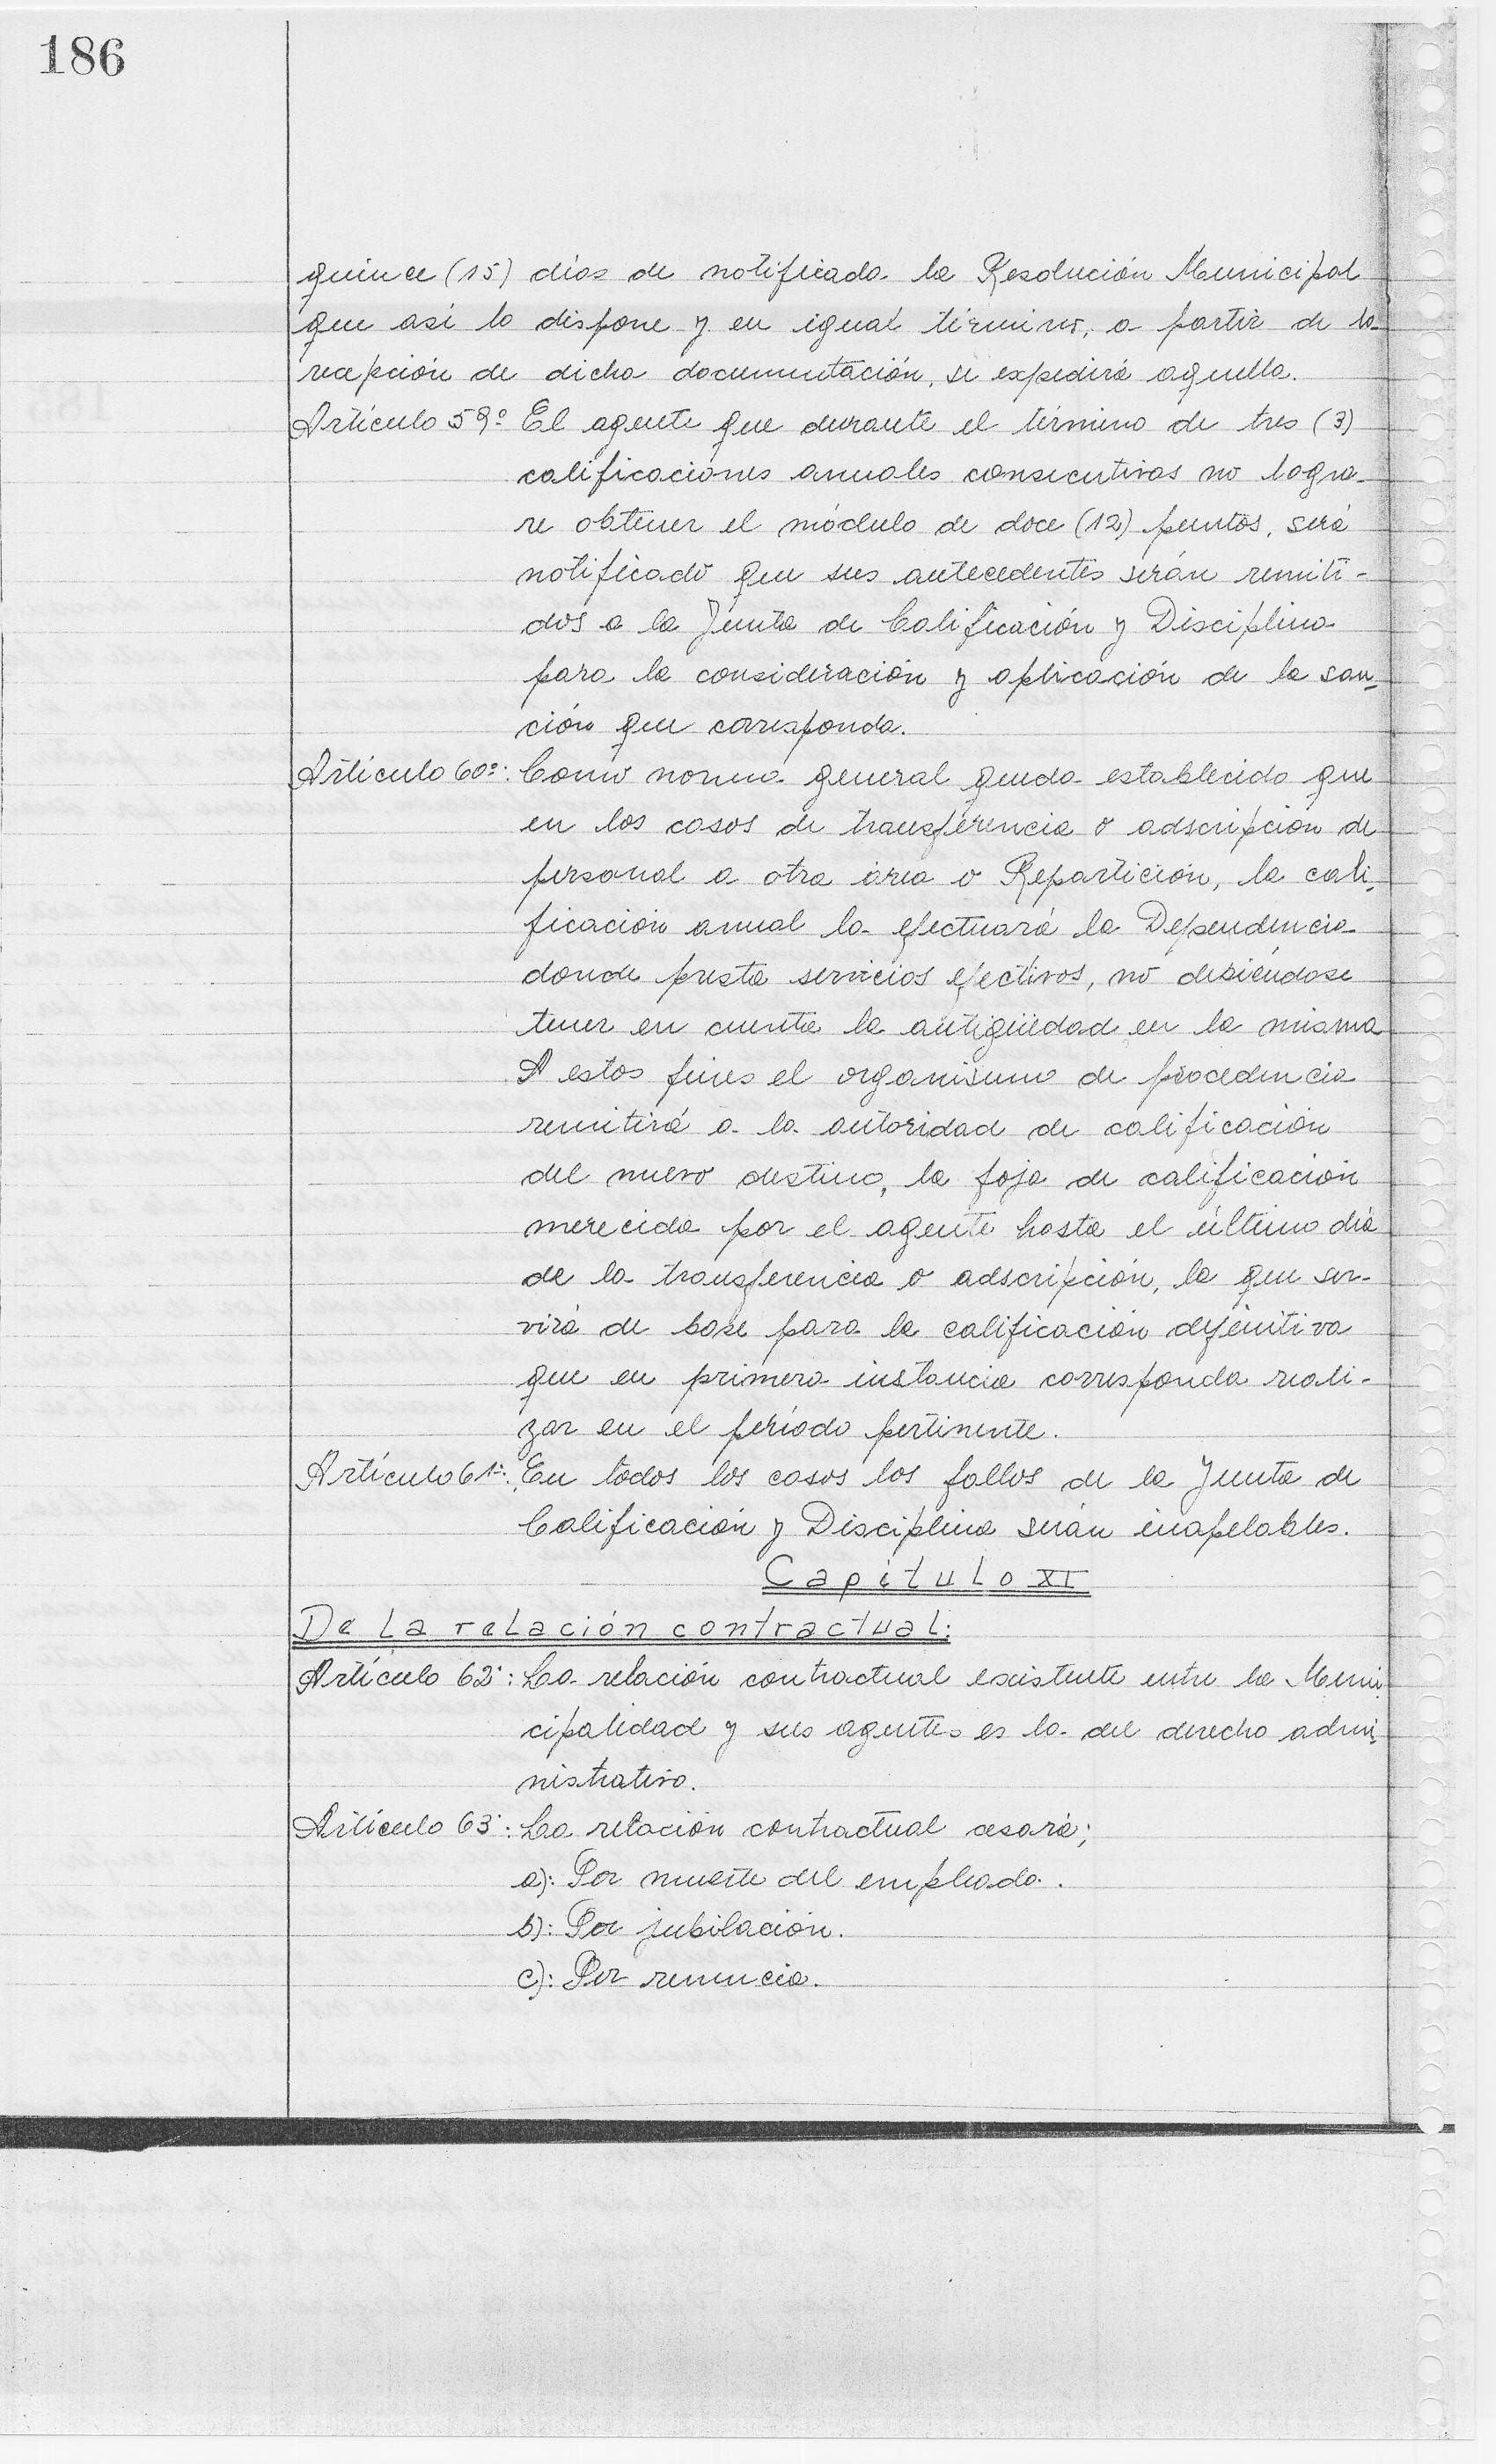 186
quince (15) días de notificada la Resolución Municipal
que así lo dispone y en igual término, a partir de la
recepción de dicha documentación, se expedirá aquella.
Artículo 59º El agente que durante el término de tres (3)
calificaciones anuales consecutivas no logra-
re obtener el módulo de doce (12) puntos, será
notificado que sus antecedentes serán remiti-
dos a la Junta de Calificación y Disciplina
para la consideración y aplicación de la san-
ción que corresponda.
Artículo 60º: Como norma general queda establecido que
en los casos de transferencia o adscripción de
personal a otra área o Repartición, la cali-
ficación anual la efectuará la Dependencia
donde presta servicios efectivos, no debiéndose
tener en cuenta la antigüedad en la misma
A estos fines el organismo de procedencia
remitirá a la autoridad de calificación
del nuevo destino, la foja de calificación
merecida por el agente hasta el último día
de la transferencia o adscripción, la que ser-
virá de base para la calificación definitiva
que en primera instancia corresponda reali-
zar en el período pertinente.
Artículo 61º: En todos los casos los fallos de la Junta de
Calificación y Disciplina serán inapelables.
Capítulo XI
De la relación contractual:
Artículo 62º: La relación contractual existente entre la Muni-
cipalidad y sus agentes es la del derecho admi-
nistrativo.
Artículo 63º: La relación contractual cesará;
a): Por muerte del empleado.
b): Por jubilación.
c): Por renuncia.